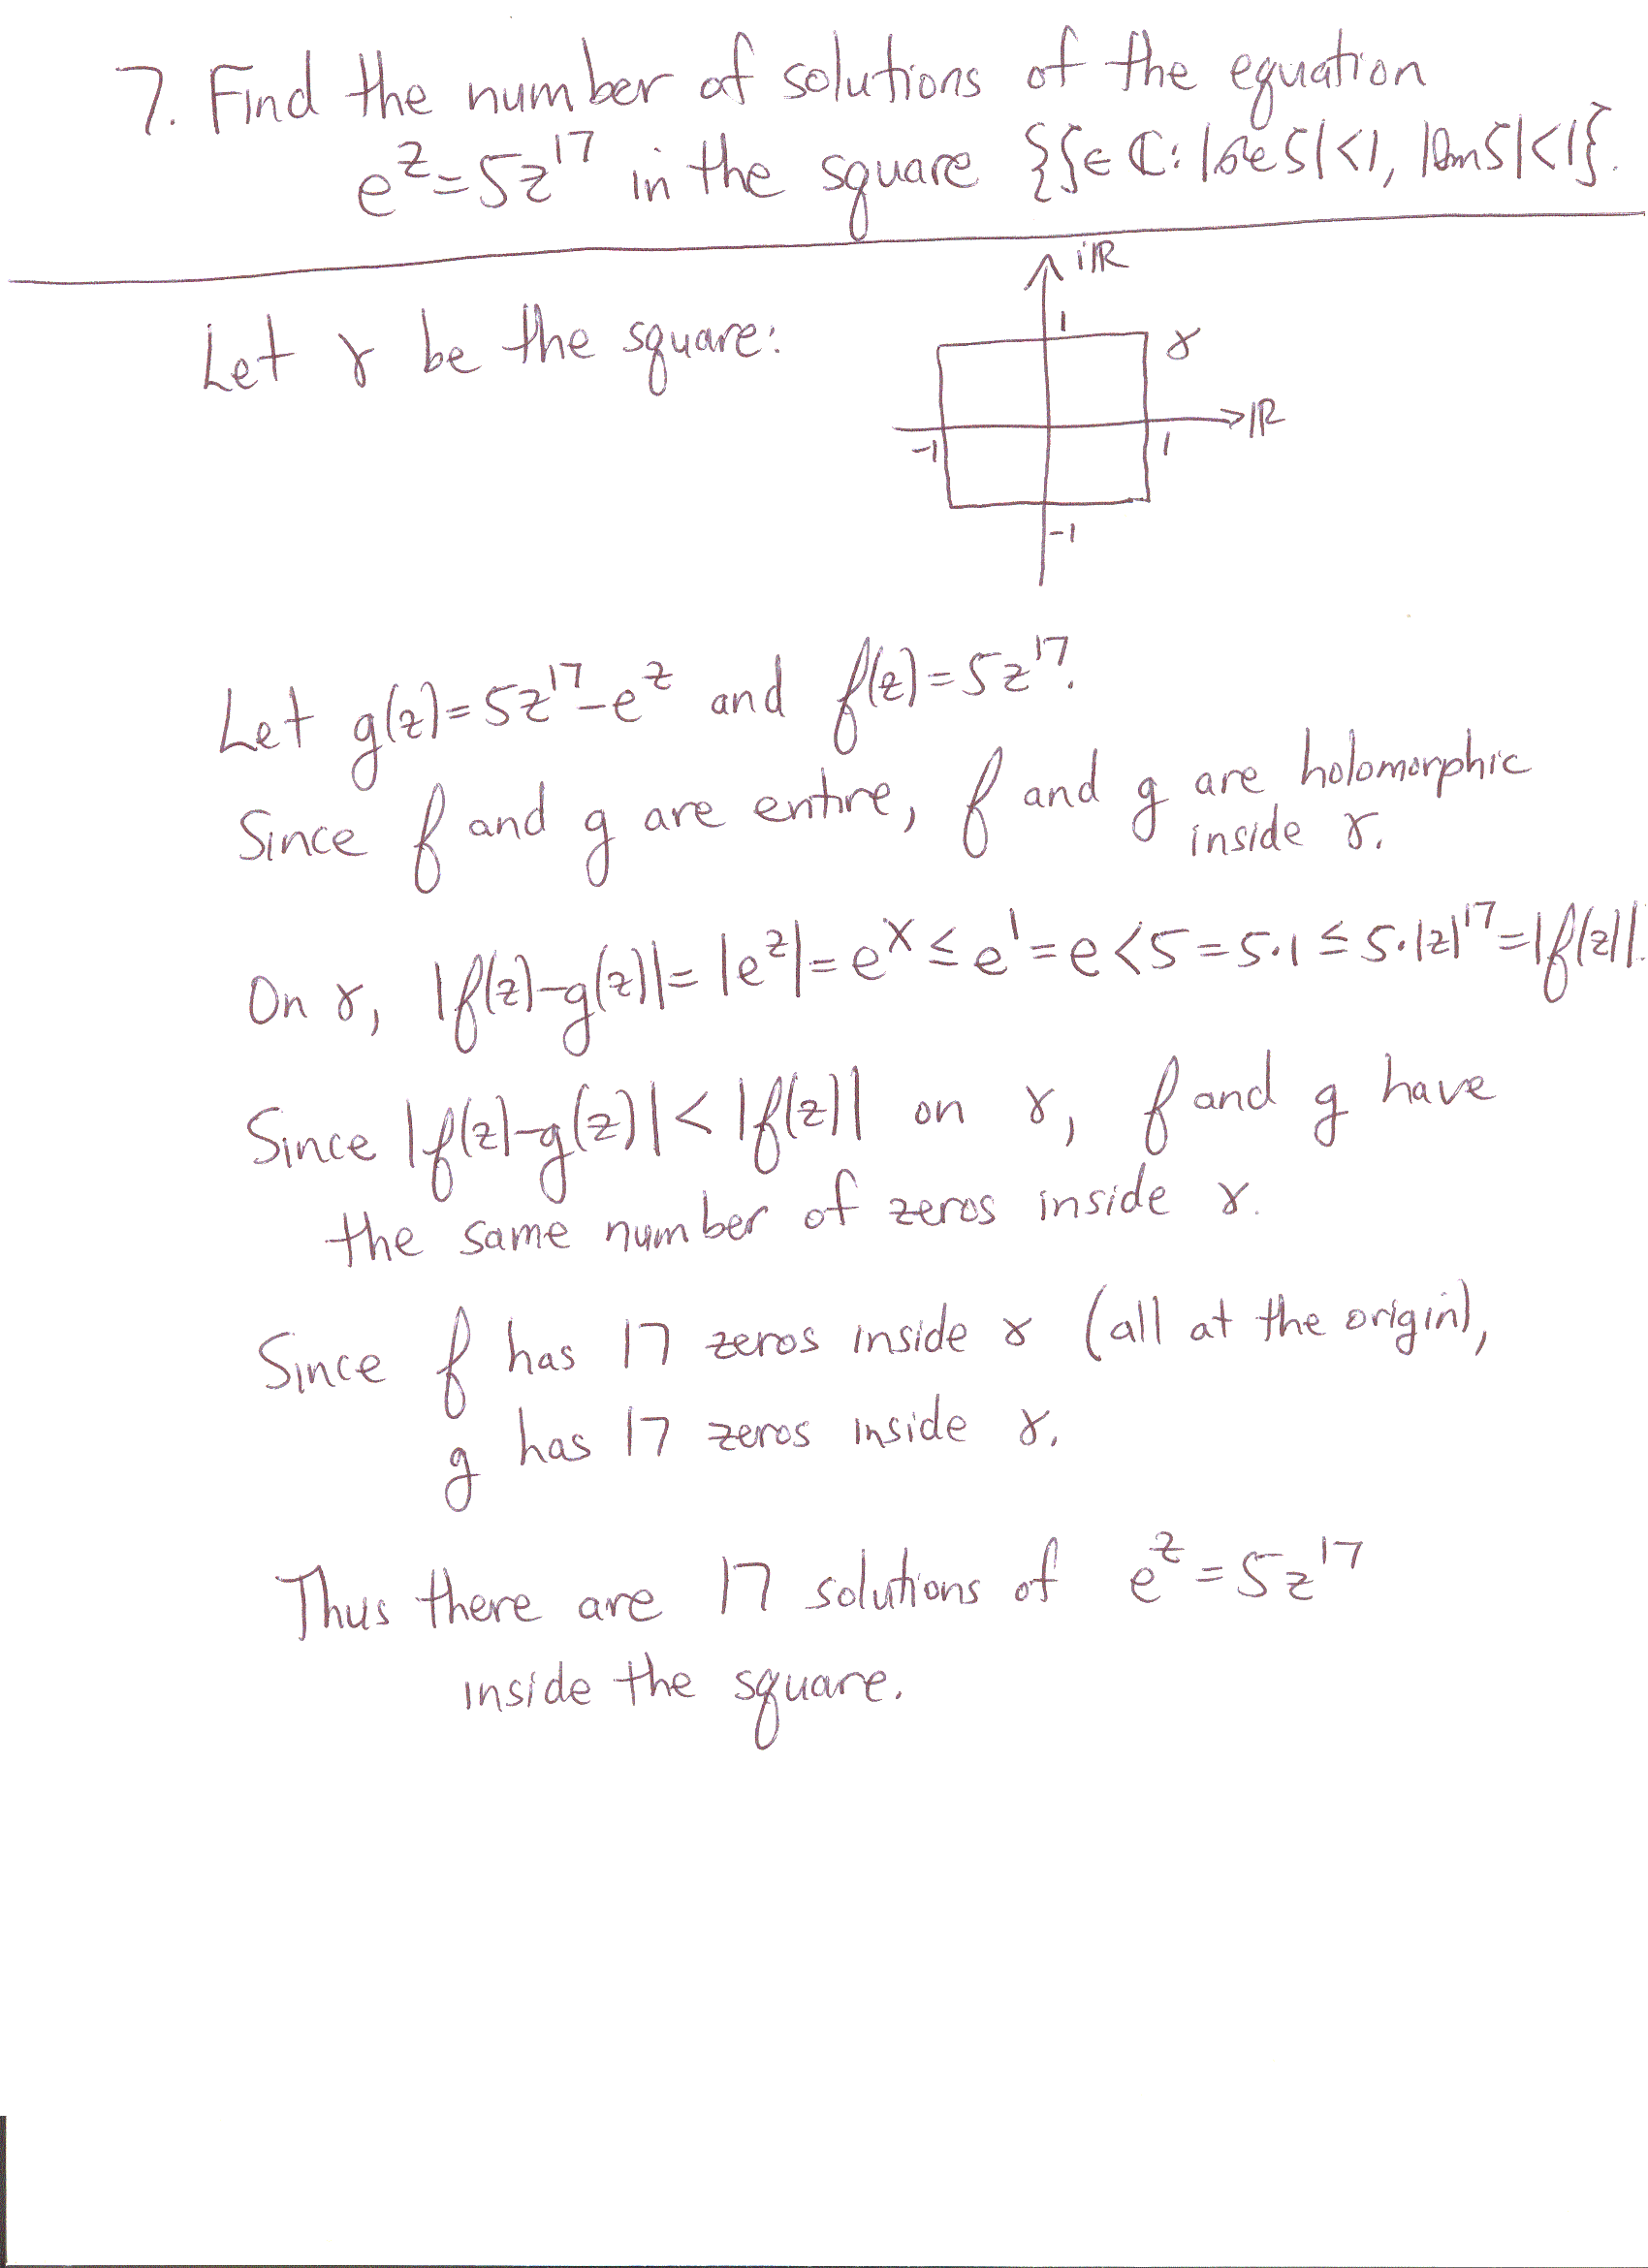 7. Find the number of solutions of the equation
e^z = 5z^17 in the square {ζ ∈ ℂ: |Re ζ| < 1, |Im ζ| < 1}.
iℝ
Let γ be the square:
1
γ
ℝ
-1
1
-1
Let g(z) = 5z^17 - e^z and f(z) = 5z^17.
Since f and g are entire, f and g are holomorphic
inside γ.
On γ, |f(z)-g(z)| = |e^z| = e^x ≤ e^1 = e < 5 = 5·1 ≤ 5·|z|^17 = |f(z)|.
Since |f(z)-g(z)| < |f(z)| on γ, f and g have
the same number of zeros inside γ.
Since f has 17 zeros inside γ (all at the origin),
g has 17 zeros inside γ.
Thus there are 17 solutions of e^z = 5z^17
inside the square.